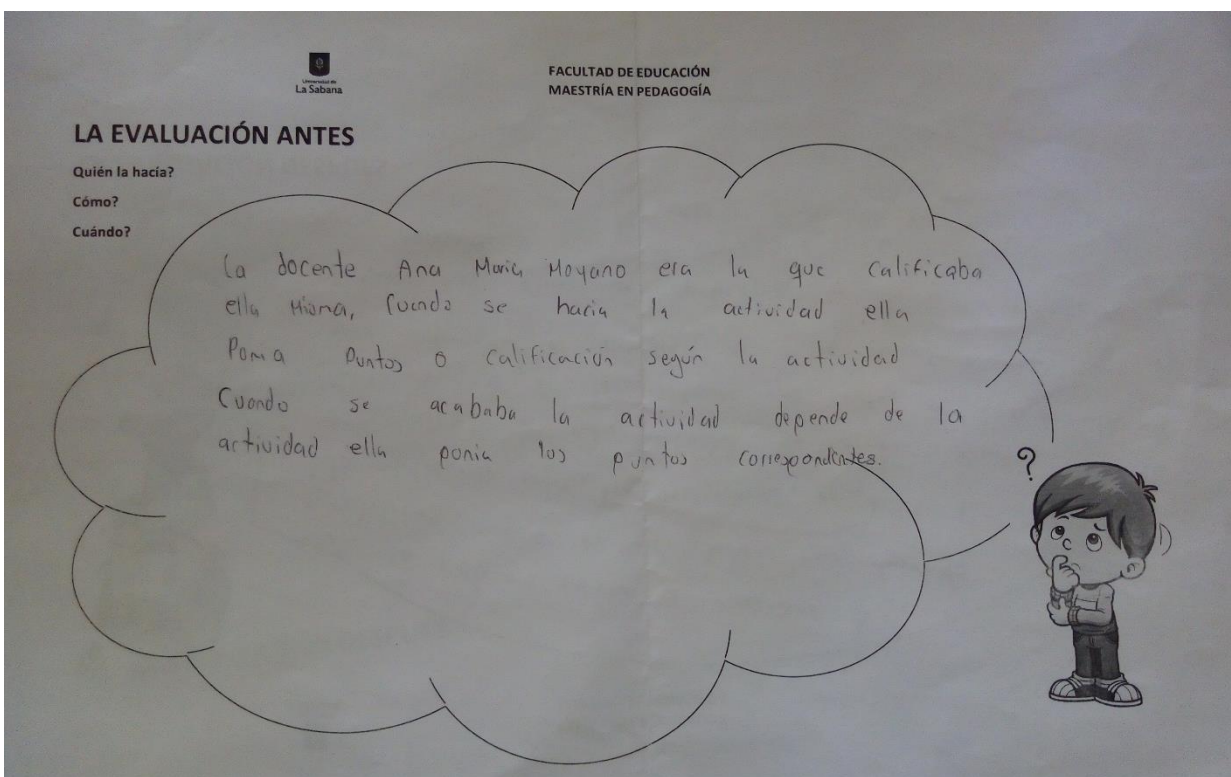 Universidad de
La Sabana
FACULTAD DE EDUCACIÓN
MAESTRÍA EN PEDAGOGÍA
LA EVALUACIÓN ANTES
Quién la hacía?
Cómo?
Cuándo?
la docente Ana Maria Moyano era la que calificaba
ella misma, cuando se hacia la actividad ella
Ponia puntos o calificación según la actividad
Cuando se acababa la actividad depende de la
actividad ella ponia los puntos correspondientes.
?